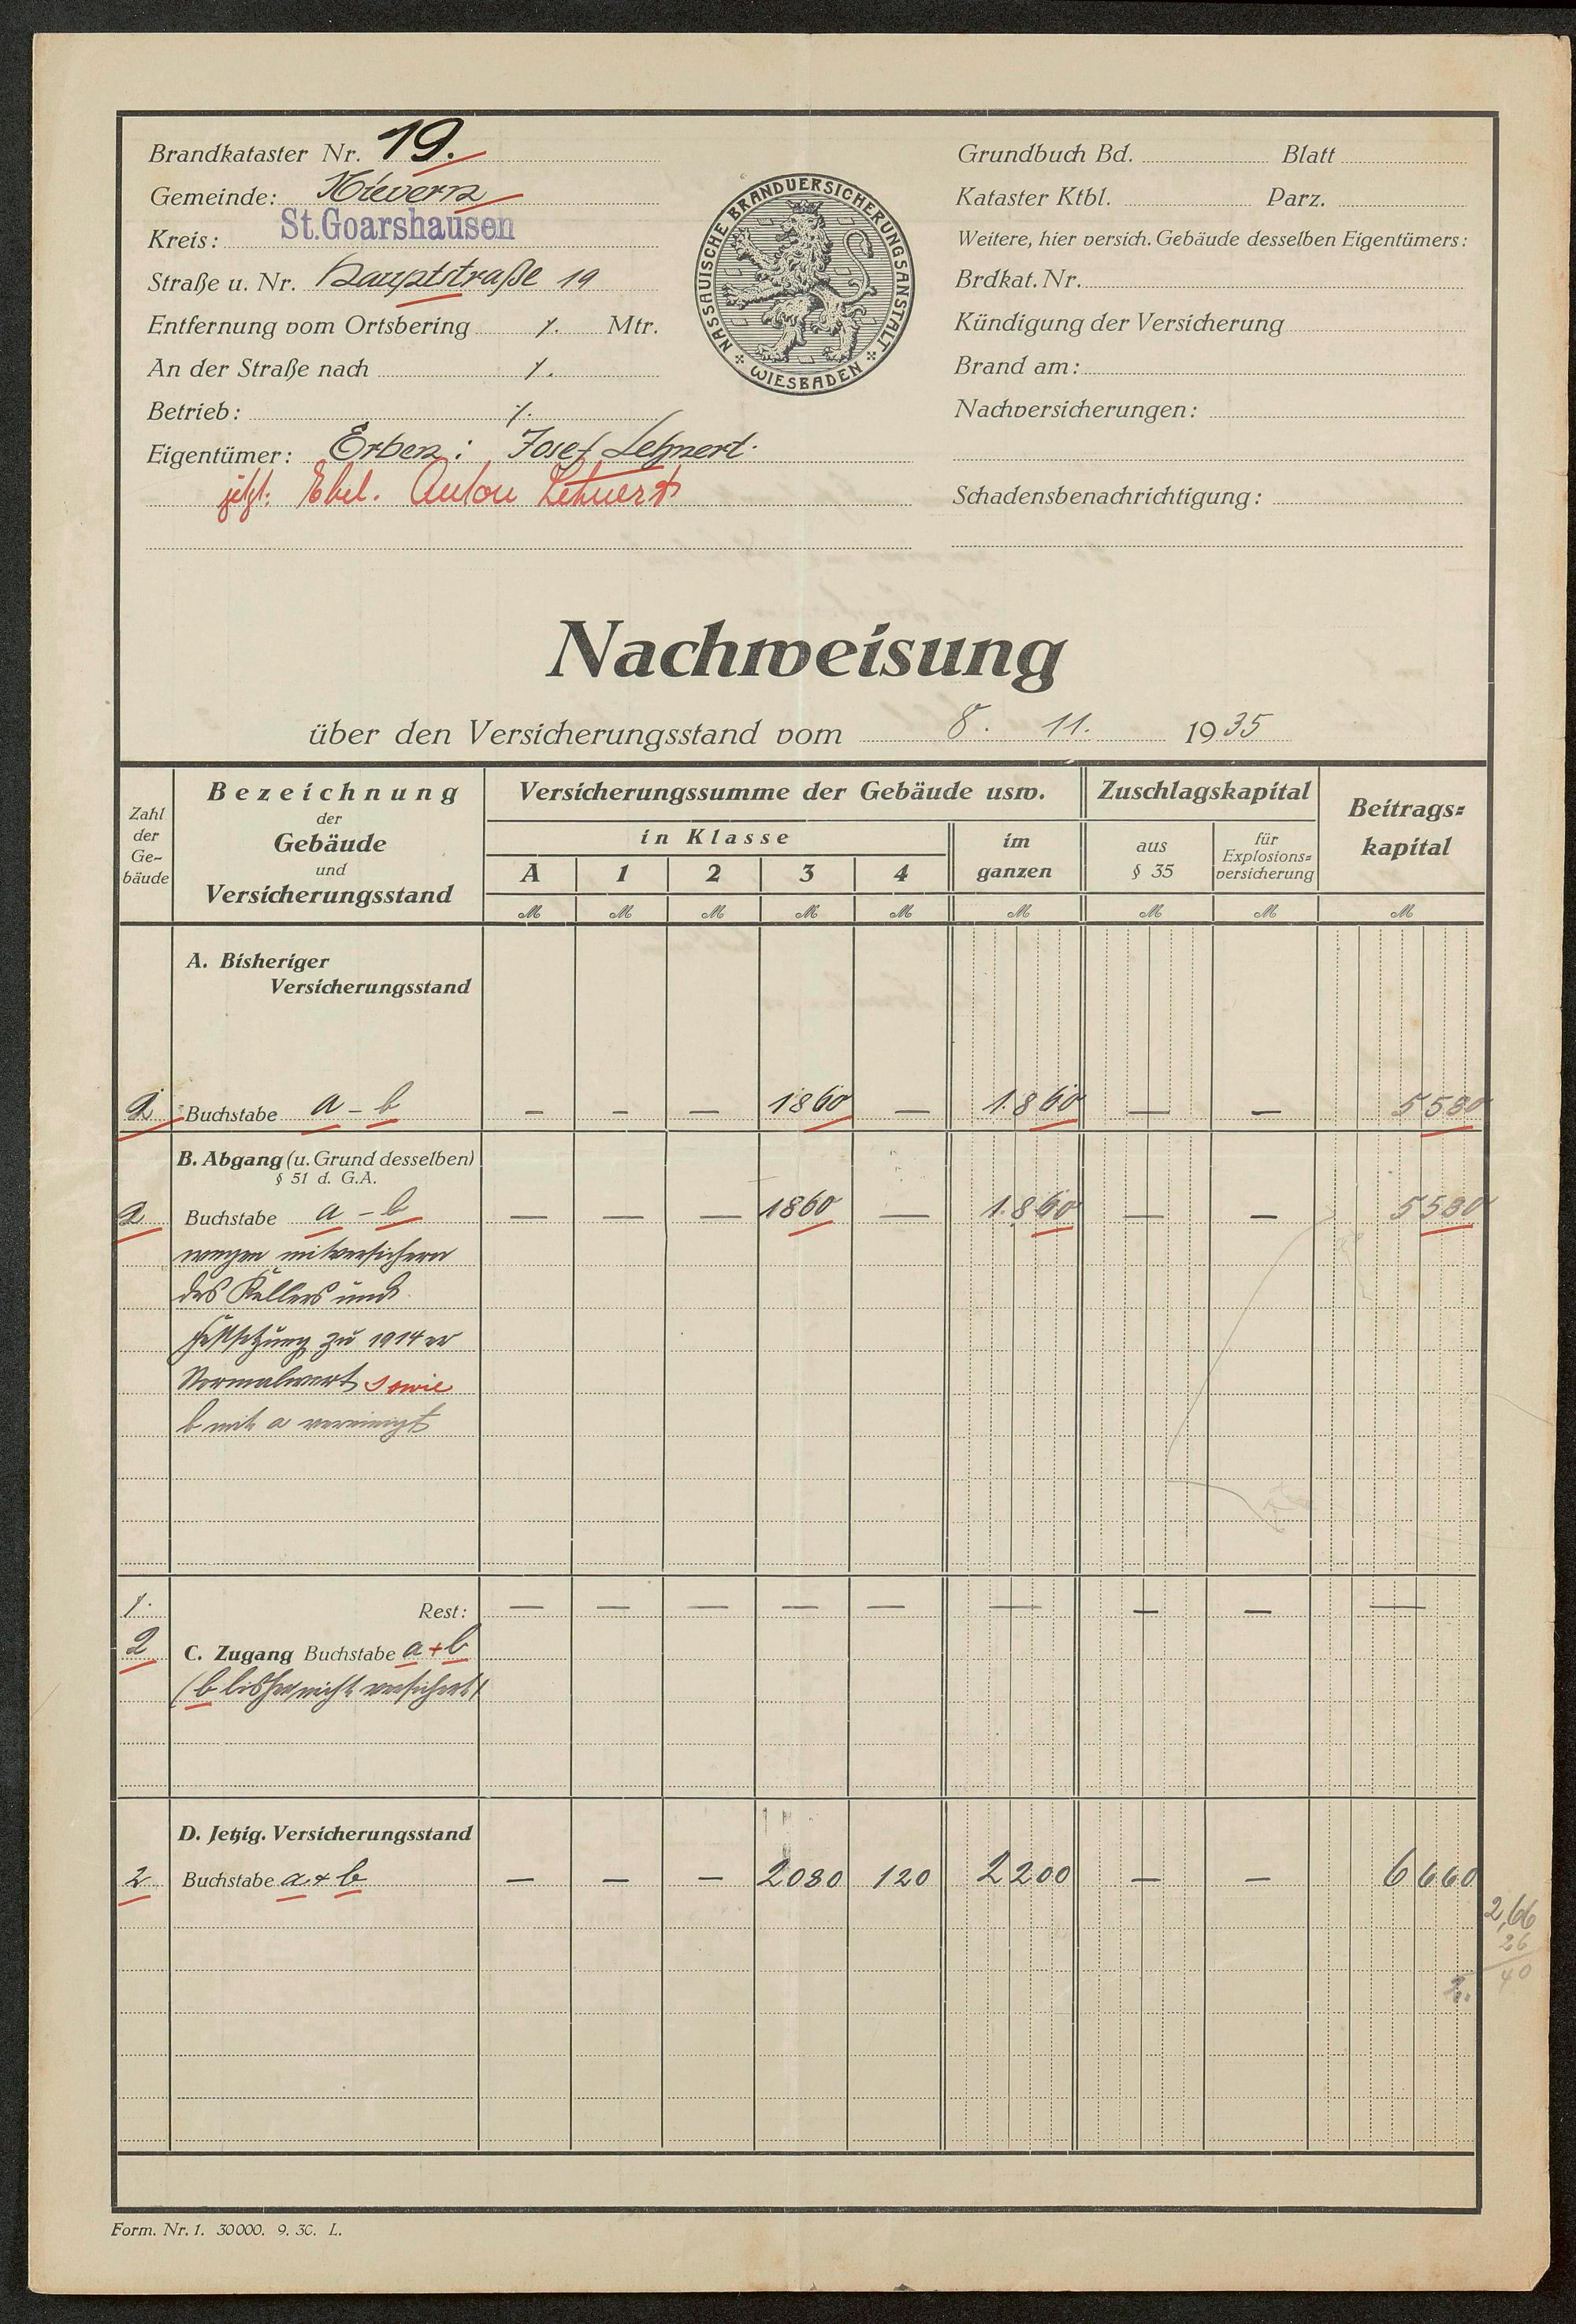 Brandkataster Nr. 19.
Gemeinde: Nievern
Kreis: St. Goarshausen
Straße u. Nr. Hauptstraße 19
Entfernung vom Ortsbering ⁒ Mtr.
An der Straße nach ⁒
Betrieb: ⁒
Eigentümer: Erben: Josef Lehnert.
jetzt: Ehel. Anton Lehnert
NASSAUISCHE BRANDVERSICHERUNGSANSTALT
WIESBADEN
Grundbuch Bd. Blatt
Kataster Ktbl. Parz.
Weitere, hier versich. Gebäude desselben Eigentümers:
Brdkat. Nr.
Kündigung der Versicherung
Brand am:
Nachversicherungen:
Schadensbenachrichtigung:
Nachweisung
über den Versicherungsstand vom 8. 11. 1935
Zahl der Ge-bäude
Bezeichnung der Gebäude und Versicherungsstand
Versicherungssumme der Gebäude usw.
Zuschlagskapital
Beitrags=kapital
in Klasse
im ganzen
aus § 35
für Explosions=versicherung
A 1 2 3 4
M M M M M M M M M
A. Bisheriger
Versicherungsstand
2 Buchstabe a - b — — — 1860 — 1.860 — — 5580
B. Abgang (u. Grund desselben)
§ 51 d. G.A.
2 Buchstabe a - b — — — 1860 — 1.860 — — 5580
wegen mitversichern
des Kellers und
Festsetzung zu 1914er
Normalwert sowie
b mit a vereinigt
⁒ Rest: — — — — — — — — —
2 C. Zugang Buchstabe a + b
(b bisher nicht versichert)
D. Jetzig. Versicherungsstand
2 Buchstabe a + b — — — 2080 120 2200 — — 6660
2,66
26
40
Form. Nr. 1. 30000. 9. 30. L.